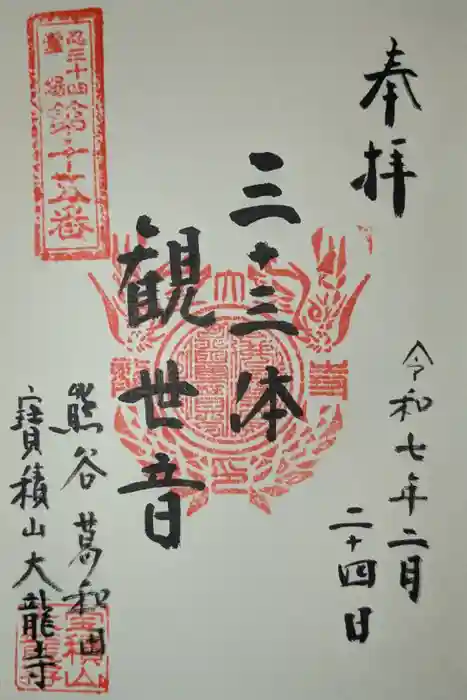 奉拝
令和七年二月
二十四日
三十三体
観世音
熊谷 葛和田
寳積山大龍寺
忍三十四
霊場
第十五番